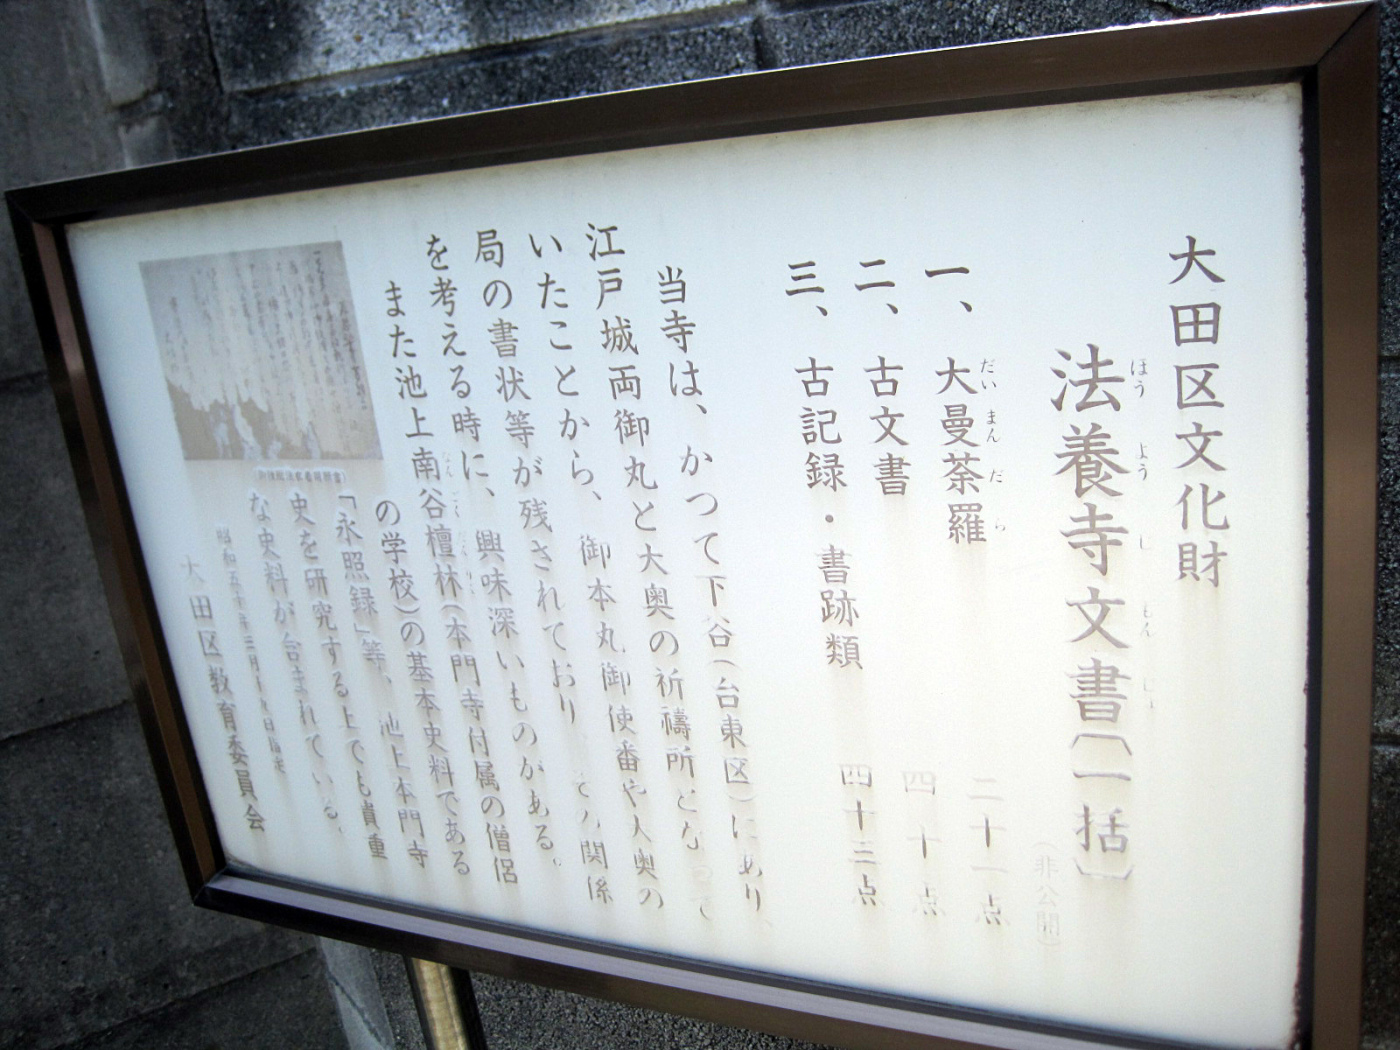 大田区文化財
法養寺文書〔一括〕
ほうようじもんじょ
（非公開）
一、大曼荼羅 二十一点
だいまんだら
二、古文書 四十点
三、古記録・書跡類 四十三点
当寺は、かつて下谷（台東区）にあり、
江戸城両御丸と大奥の祈禱所となって
いたことから、御本丸御使番や大奥の
局の書状等が残されており その関係
を考える時に、興味深いものがある。
また池上南谷檀林（本門寺付属の僧侶
の学校）の基本史料である
「永照録」等、池上本門寺
史を研究する上でも貴重
な史料が含まれている。
昭和五十 年三月十九日指定
大田区教育委員会